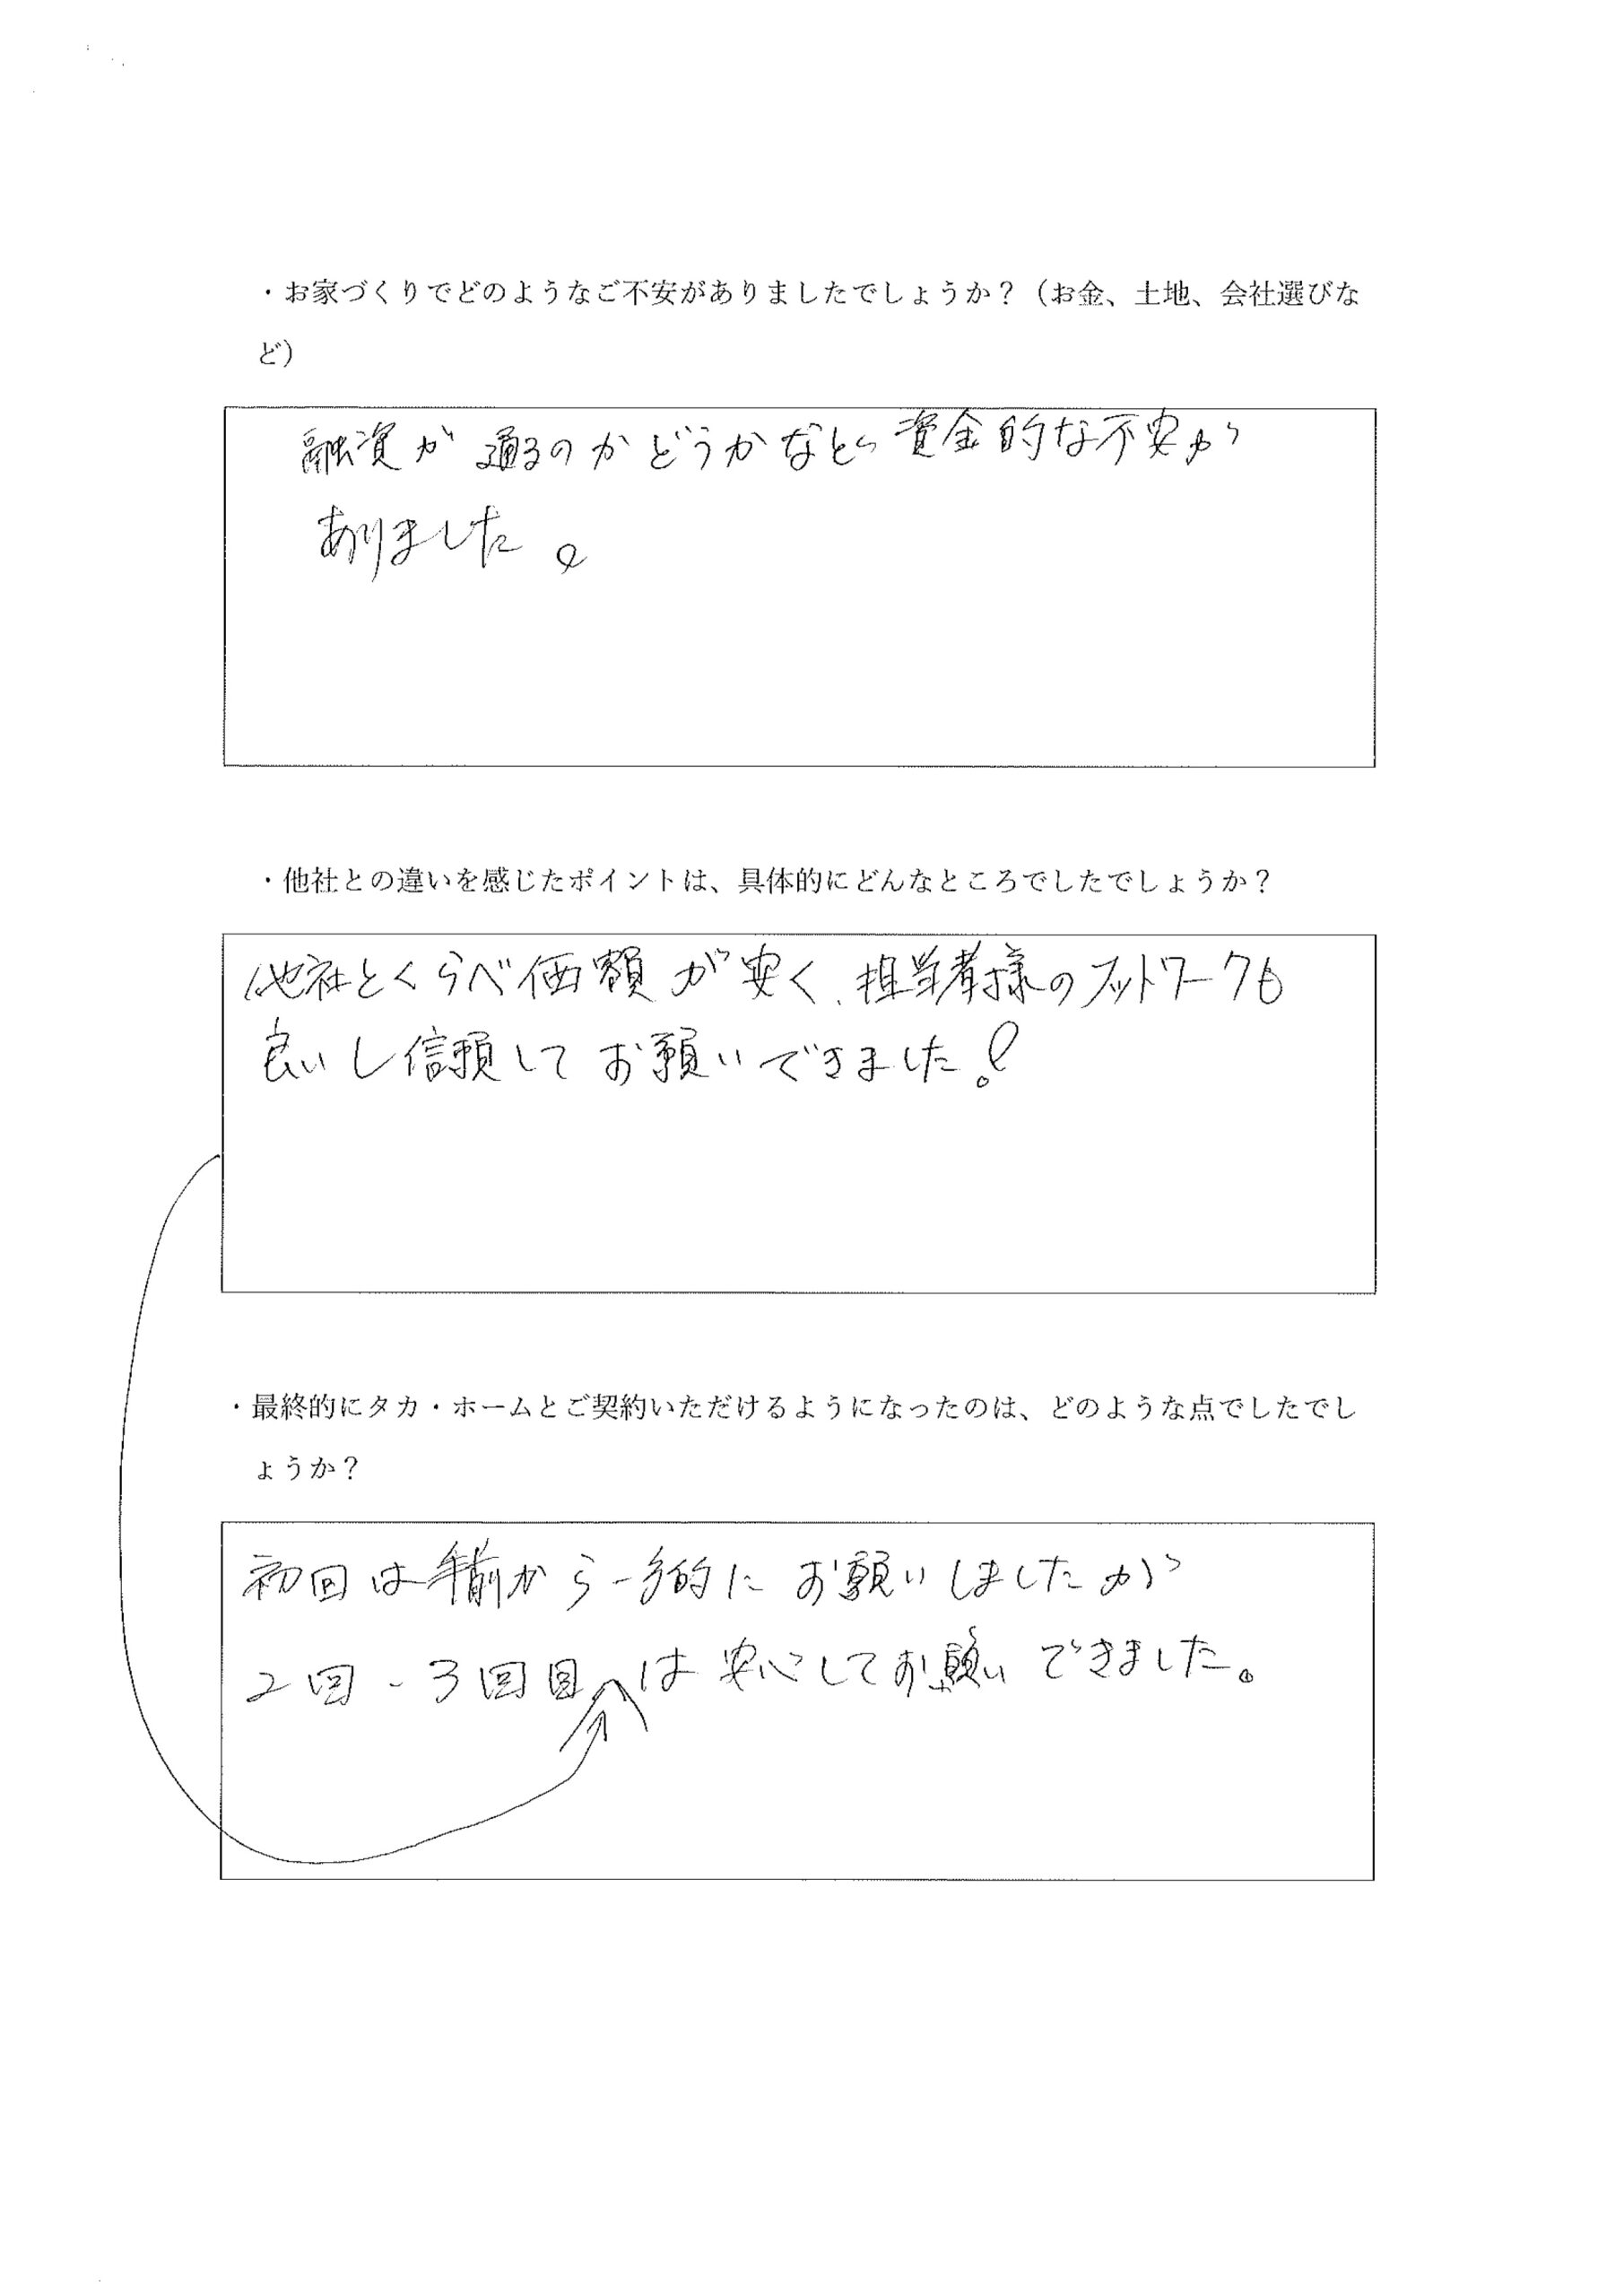 ・お家づくりでどのようなご不安がありましたでしょうか？（お金、土地、会社選びな
ど）
融資が通るのかどうかなど資金的な不安が
ありました。
・他社との違いを感じたポイントは、具体的にどんなところでしたでしょうか？
他社とくらべ価額が安く、担当者様のフットワークも
良いし信頼してお願いできました！
・最終的にタカ・ホームとご契約いただけるようになったのは、どのような点でしたでし
ょうか？
初回は手前から的にお願いしましたが
2回・3回目は安心してお願いできました。